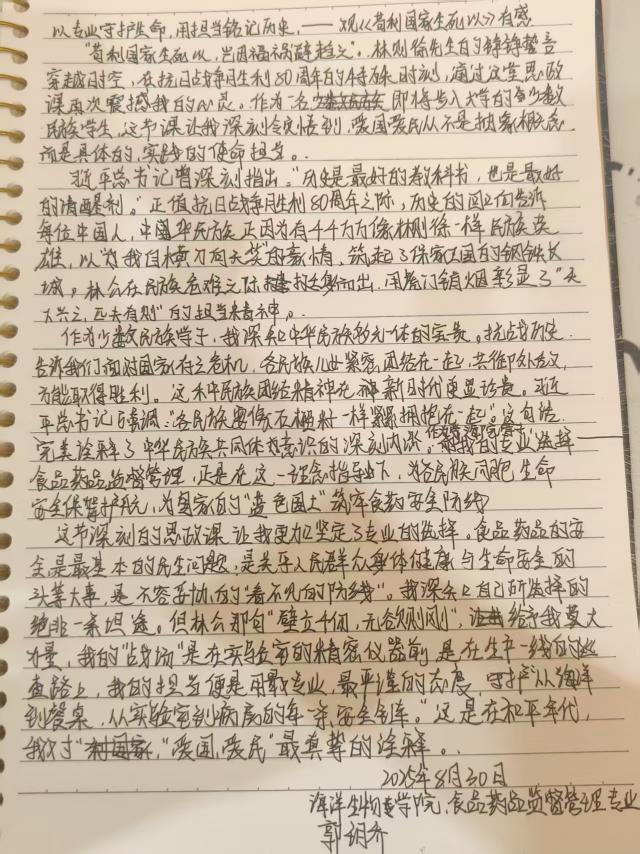 以专业守护生命,用担当铭记历史,——观《苟利国家生死以》有感
"苟利国家生死以,岂因福祸避趋之"。林则徐先生的铮铮誓言
穿越时空,在抗日战争胜利80周年的特殊时刻,通过这堂思政
课再次震撼我的心灵。作为一名即将步入大学的少数
民族学生,这节课让我深刻领悟到,爱国爱民从不是抽象概念,
而是具体的,实践的使命担当。
习近平总书记曾深刻指出:"历史是最好的教科书,也是最好
的清醒剂。"正值抗日战争胜利80周年之际,历史的回响告诉
每位中国人,中国华民族正因为有千千万万像林则徐一样民族英
雄,以"我自横刀向天笑"的豪情,筑起了保家卫国的钢铁长
城。林公在民族危难之际挺身而出,用虎门销烟彰显了"天
下兴亡,匹夫有责"的担当精神。
作为少数民族学子,我深知中华民族多元一体的宝贵。抗战历史
告诉我们面对国家存亡危机,各民族儿女紧密团结在一起,共御外敌,
方能取得胜利。这种民族团结精神在新时代更显珍贵。习近
平总书记强调:"各民族要像石榴籽一样紧紧拥抱在一起"。这句话
完美诠释了中华民族共同体意识的深刻内涵。我的专业选择
食品药品监督管理,正是在这一理念指导下,为各民族同胞生命
安全保驾护航,为国家的"蓝色国土"筑牢食药安全防线
这节深刻的思政课让我更加坚定了专业的选择。食品药品的安
全是最基本的民生问题,是关乎人民群众身体健康与生命安全的
头等大事,是不容妥协的"看不见的防线"。我深知自己所选择的
绝非一条坦途。但林公那句"壁立千仞,无欲则刚",给予我莫大
力量,我的"战场"是在实验室的精密仪器前,是在生产一线的巡
查路上,我的担当便是用最专业,最严谨的态度,守护"从海洋
到餐桌,从实验室到病房的每一条安全链条。"这是在和平年代,
我对"爱国,爱民"最真挚的诠释。
2025年8月30日
海洋生物学院,食品药品监督管理专业
郭